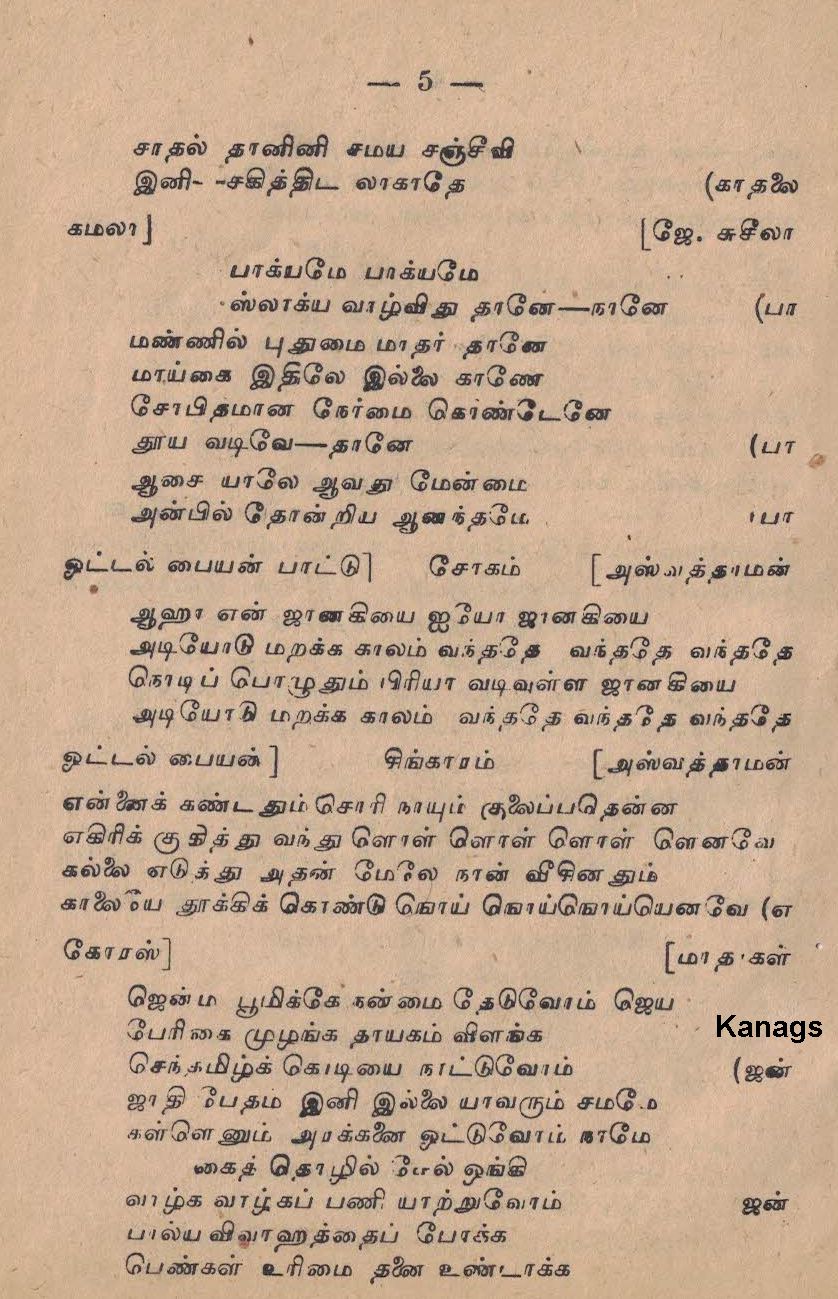 — 5 —
சாதல் தானினி சமய சஞ்சீவி
இனி- -சகித்திட லாகாதே (காதலை
கமலா] [ஜே. சுசீலா
பாக்யமே பாக்யமே
ஸ்லாக்ய வாழ்விது தானே—நானே (பா
மண்ணில் புதுமை மாதர் தானே
மாய்கை இதிலே இல்லை காணே
சோபிதமான நேர்மை கொண்டேனே
தூய வடிவே—தானே (பா
ஆசை யாலே ஆவது மேன்மை
அன்பில் தோன்றிய ஆனந்தமே (பா
ஓட்டல் பையன் பாட்டு] சோகம் [அஸ்வத்தாமன்
ஆஹா என் ஜானகியை ஐயோ ஜானகியை
அடியோடு மறக்க காலம் வந்ததே வந்ததே வந்ததே
நொடிப் பொழுதும் பிரியா வடிவுள்ள ஜானகியை
அடியோடு மறக்க காலம் வந்ததே வந்ததே வந்ததே
ஓட்டல் பையன்] சிங்காரம் [அஸ்வத்தாமன்
என்னைக் கண்டதும் சொரி நாயும் குலைப்பதென்ன
எகிரிக் குதித்து வந்து ளொள் ளொள் ளொள் ளெனவே
கல்லை எடுத்து அதன் மேலே நான் வீசினதும்
காலையே தூக்கிக் கொண்டு ஙொய் ஙொய்ஙொய்யெனவே (எ
கோரஸ்] [மாதர்கள்
ஜென்ம பூமிக்கே நன்மை தேடுவோம் ஜெய
பேரிகை முழங்க தாயகம் விளங்க
Kanags
செந்தமிழ்க் கொடியை நாட்டுவோம் (ஜன்
ஜாதி பேதம் இனி இல்லை யாவரும் சமமே
கள்ளெனும் அரக்கனை ஓட்டுவோம் நாமே
கைத் தொழில் மேல் ஓங்கி
வாழ்க வாழ்கப் பணி யாற்றுவோம் ஜன்
பால்ய விவாஹத்தைப் போக்க
பெண்கள் உரிமை தனை உண்டாக்க